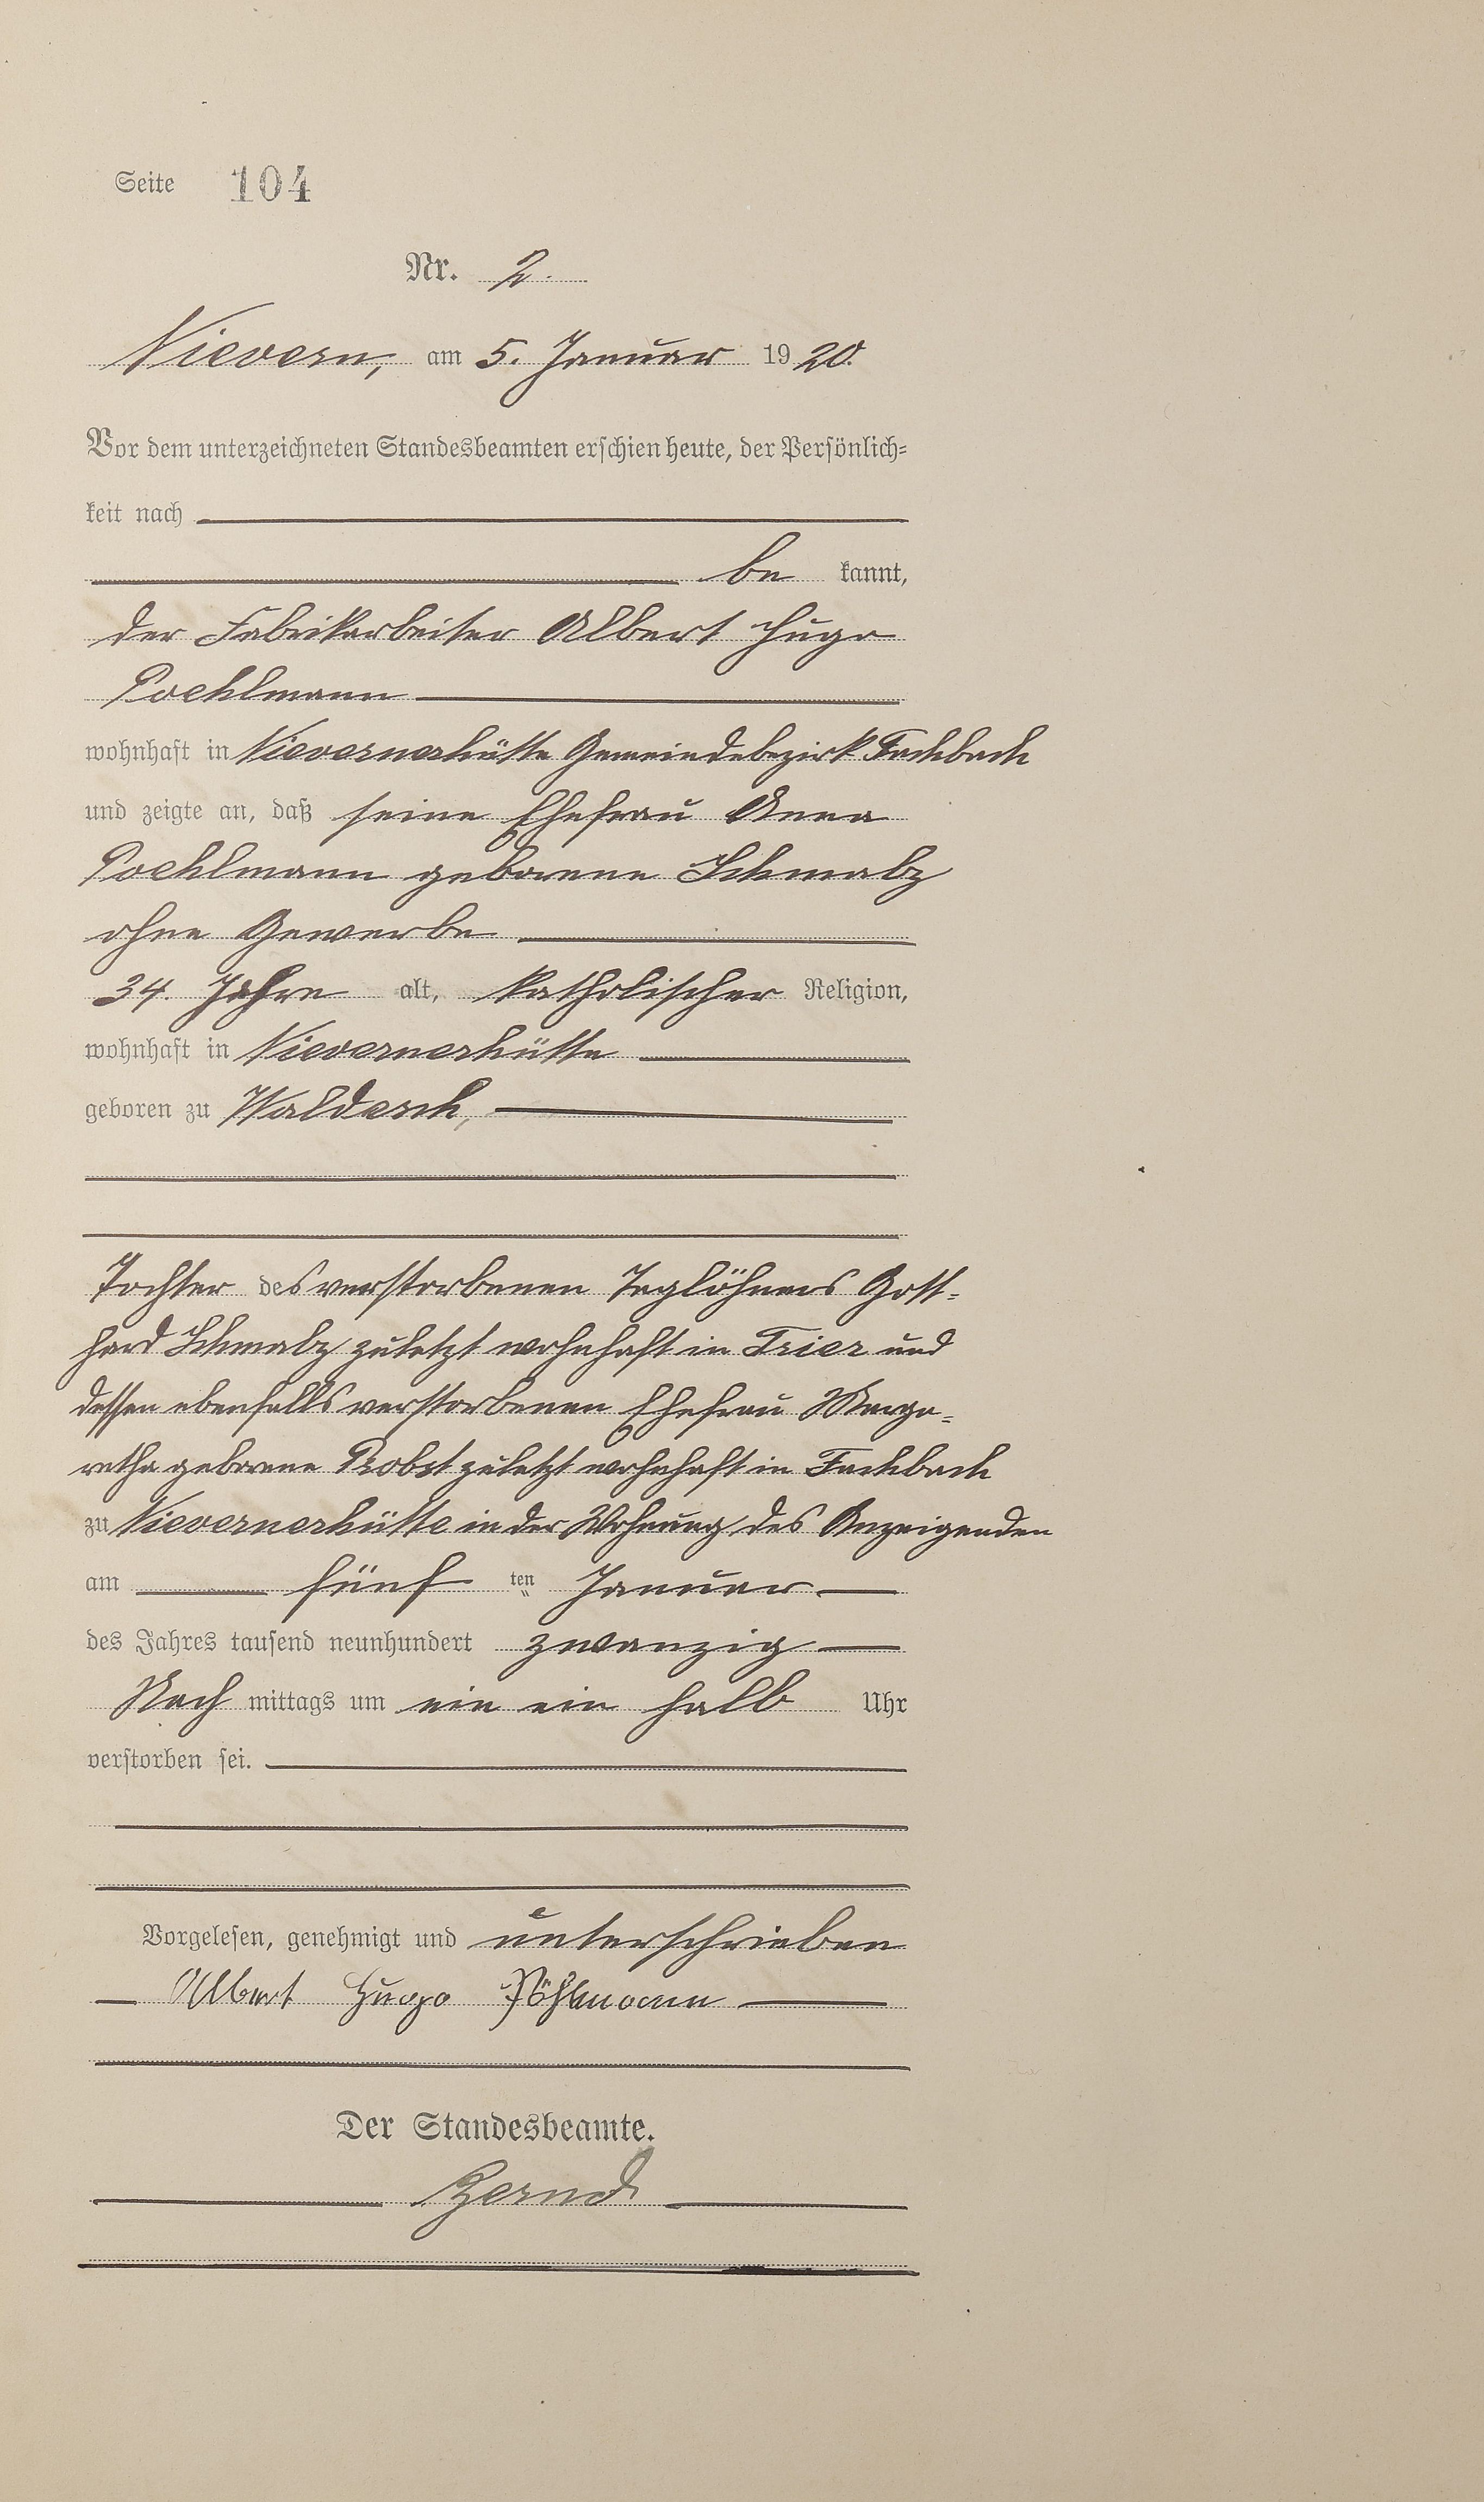 Seite 104
Nr. 2.
Nievern, am 5. Januar 1920.
Vor dem unterzeichneten Standesbeamten erschien heute, der Persönlich-
keit nach
be kannt,
der Fabrikarbeiter Albert Hugo
Poehlmann
wohnhaft in Nievernerhütte Gemeindebezirk Fachbach
und zeigte an, daß seine Ehefrau Anna
Poehlmann geborene Schmalz
ohne Gewerbe
34. Jahre alt, katholischer Religion,
wohnhaft in Nievernerhütte
geboren zu Waldesch,
Tochter des verstorbenen Taglöhners Gott-
hard Schmalz zuletzt wohnhaft in Trier und
dessen ebenfalls verstorbenen Ehefrau Marga-
retha geborene Probst zuletzt wohnhaft in Fachbach
zu Nievernerhütte in der Wohnung des Anzeigenden
am fünf ten Januar
des Jahres tausend neunhundert zwanzig
Nach mittags um ein ein halb Uhr
verstorben sei.
Vorgelesen, genehmigt und unterschrieben
Albert Hugo Pöhlmann
Der Standesbeamte.